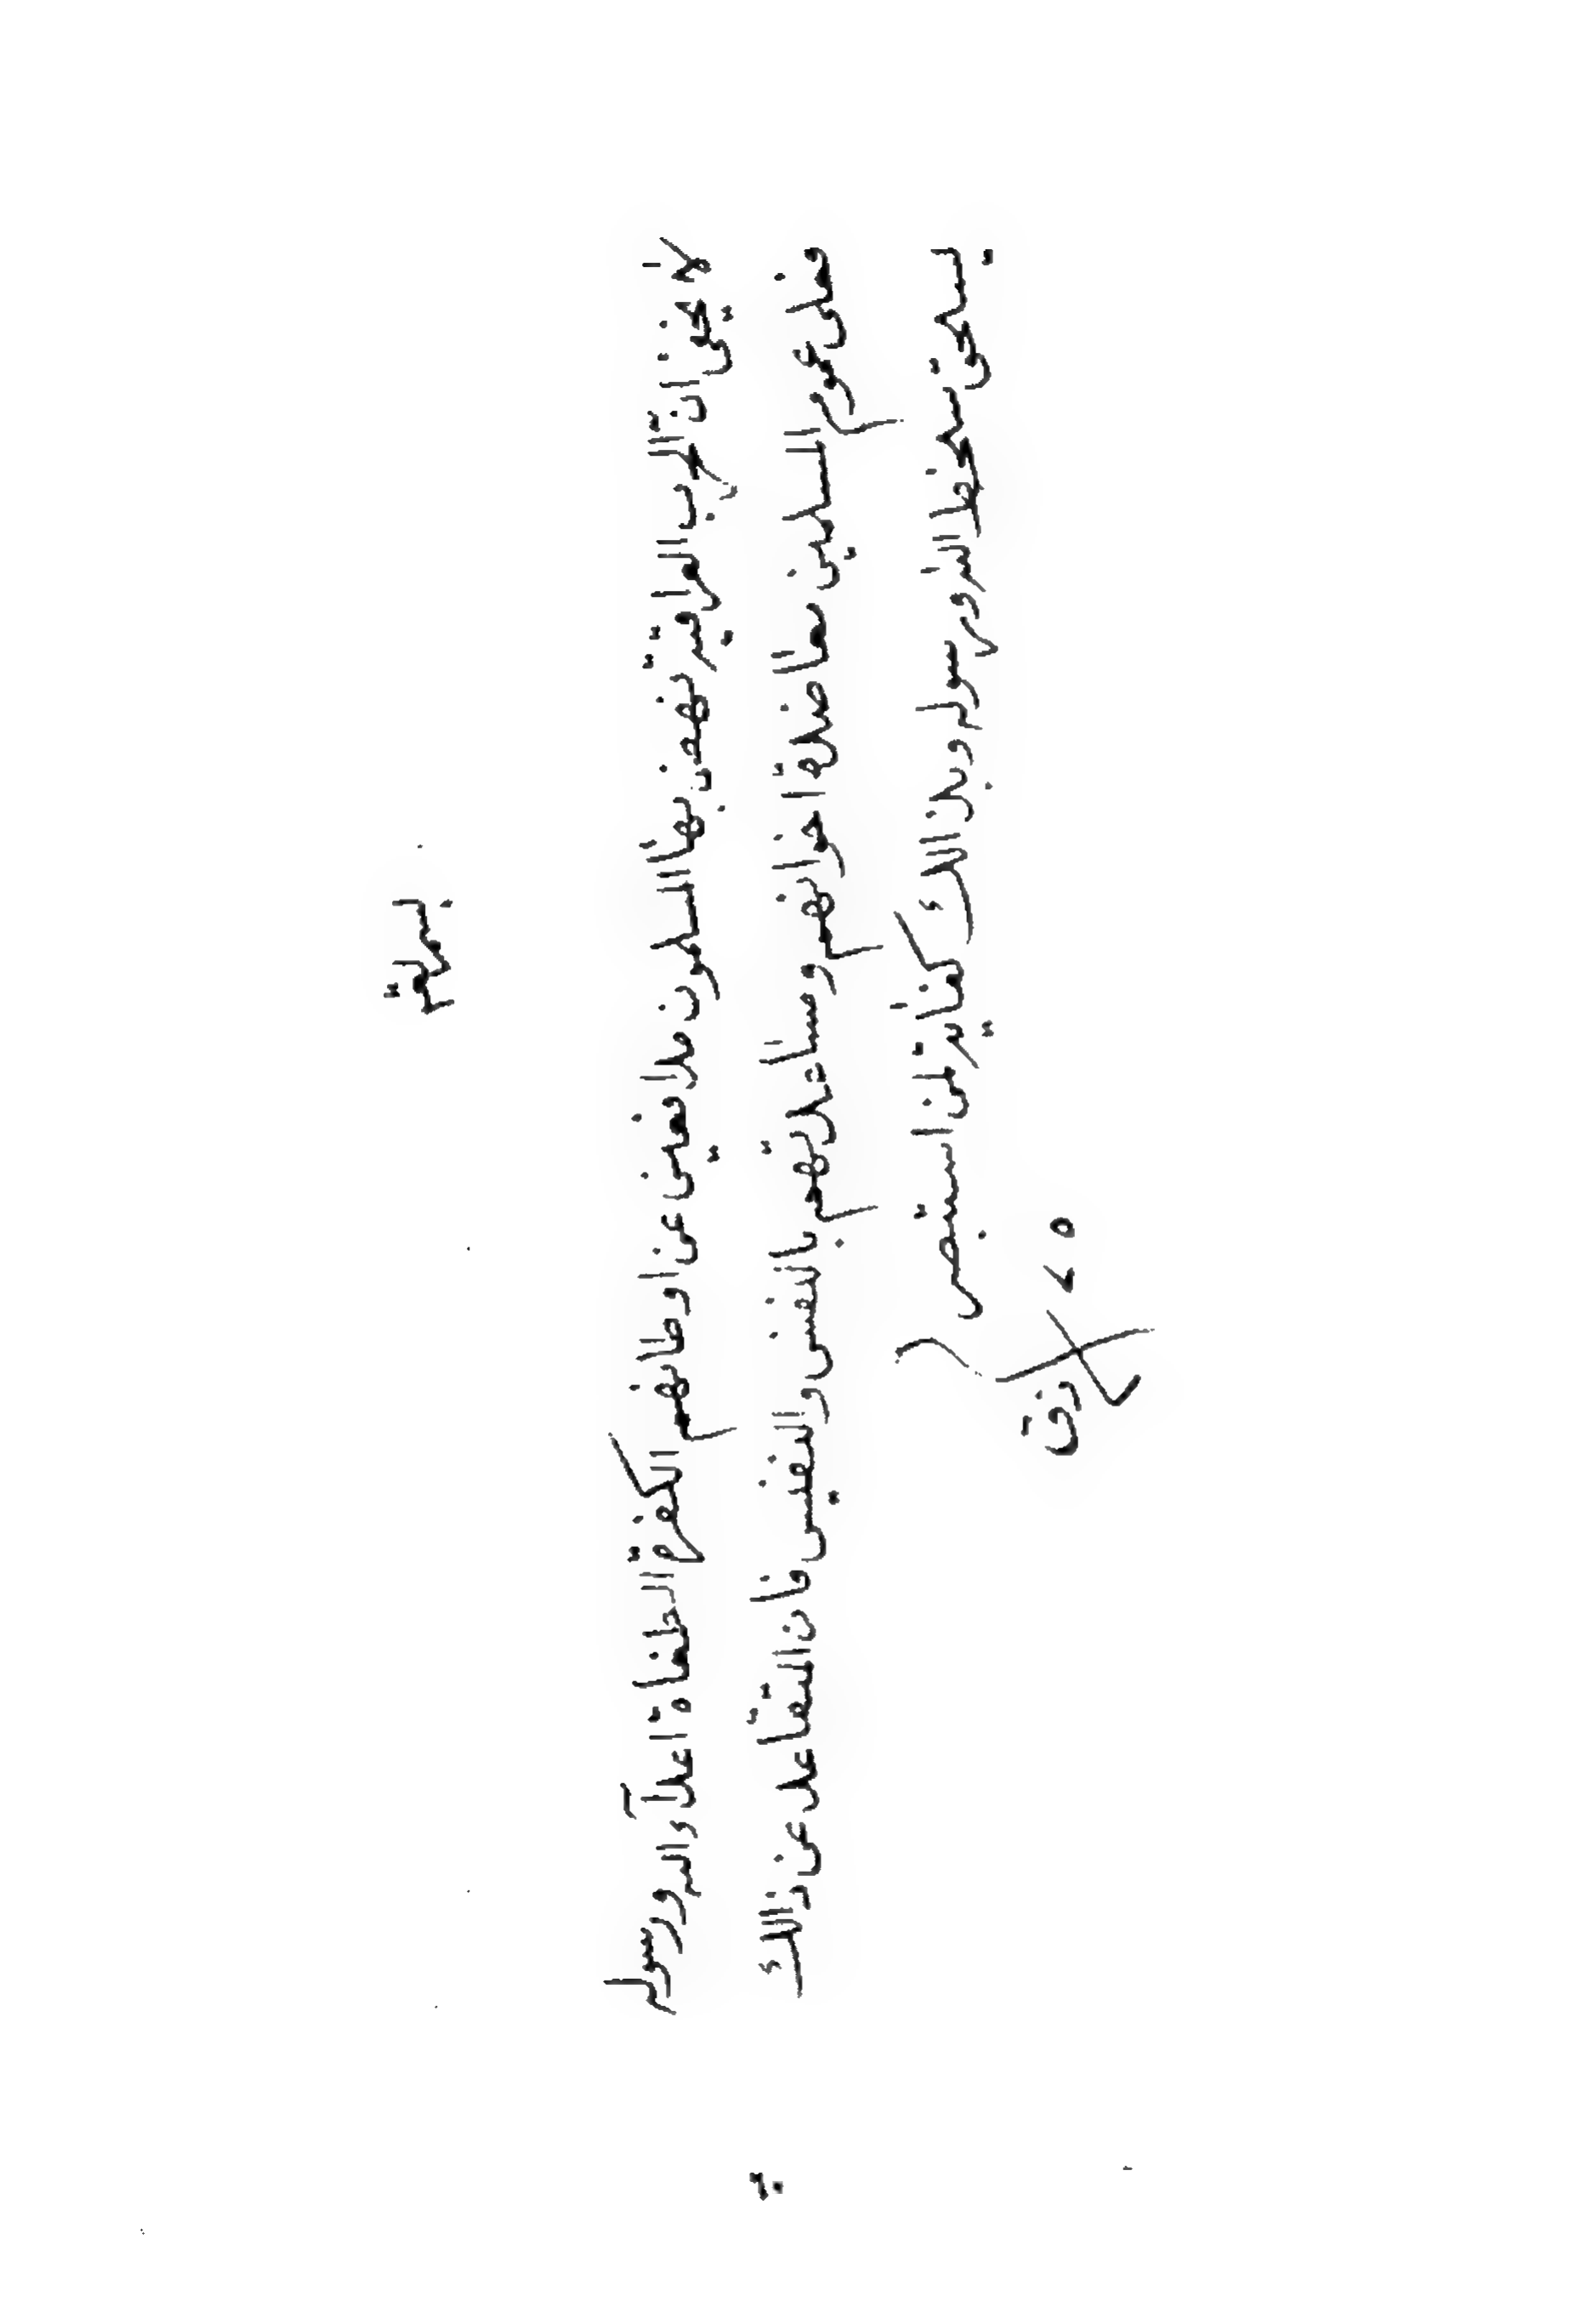 لا يخفى ان الحرب العراقية نهض بها المسلمون مدافعين عن اوطانهم الكفرة الطغاة اعدآء الله ورسوله
فعلى عموم المسلمين معاضدة اخوانهم ومساعدتهم بالنفس والنفيس فان التقاعد عن ذالك
سخط الله ورسوله وبذالك كفاية لمن استبصر